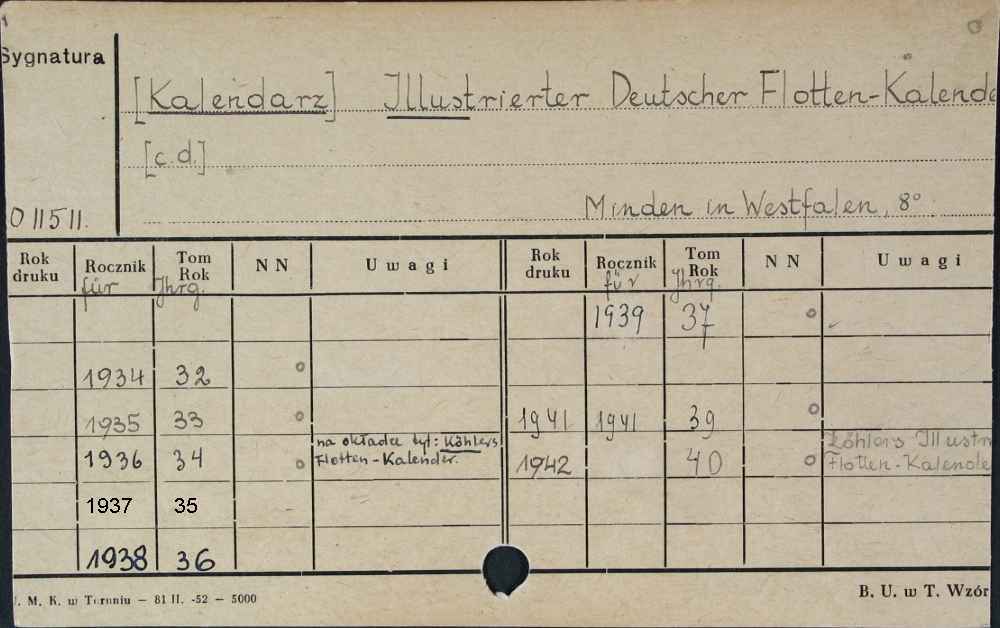 Sygnatura
[Kalendarz] Illustrierter Deutscher Flotten-Kalende
[c.d.]
Minden in Westfalen, 8°
011511.
Rok druku Rocznik für Tom Rok Jhrg. N N Uwagi Rok druku Rocznik für Tom Rok Jhrg. N N Uwagi
1939 37 o
1934 32 o
1935 33 o 1941 1941 39 o
1936 34 o na okładce tyt: Köhlers Flotten-Kalender. 1942 40 o Köhlers Illustr Flotten-Kalende
1937 35
1938 36
. M. K. w Toruniu — 81 II. -52 — 5000
B. U. w T. Wzór